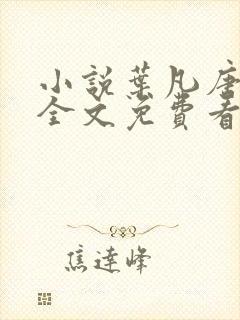 小説葉凡唐
全文免費看
焦達峰